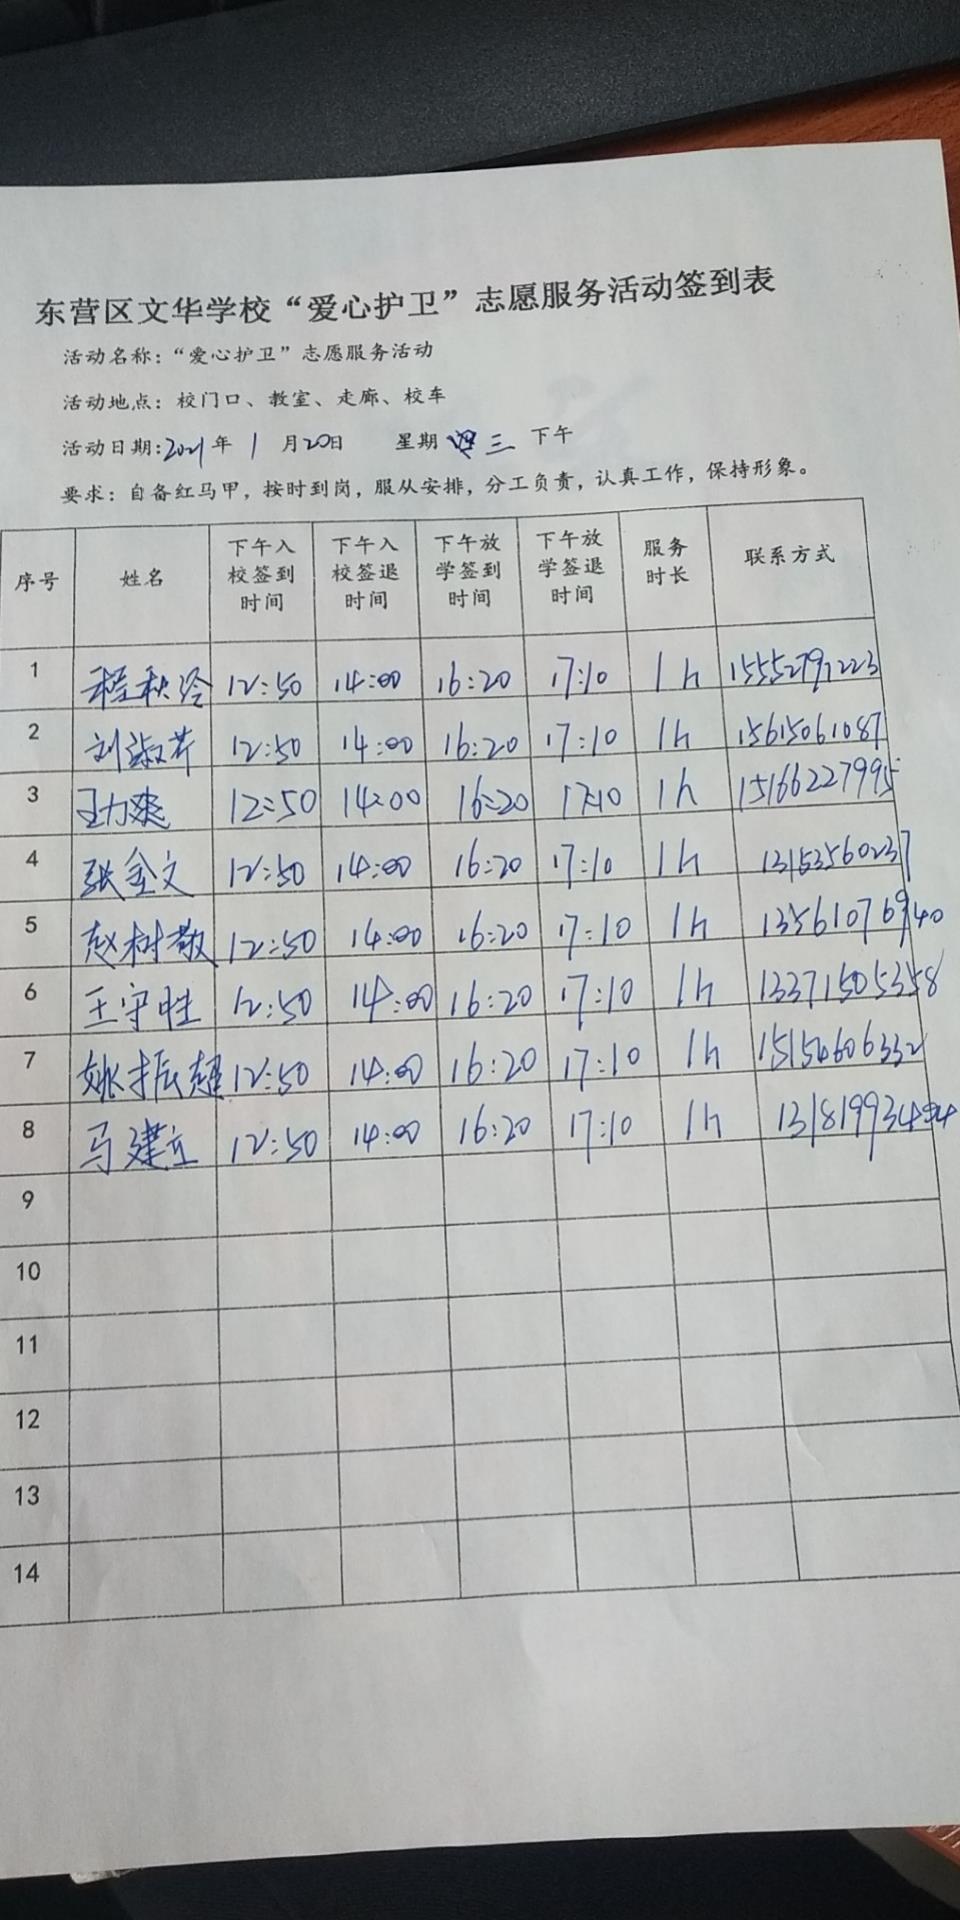 东营区文华学校“爱心护卫”志愿服务活动签到表
活动名称：“爱心护卫”志愿服务活动
活动地点：校门口、教室、走廊、校车
活动日期:2021年 1 月20日 星期 三 下午
要求：自备红马甲，按时到岗，服从安排，分工负责，认真工作，保持形象。
序号 姓名 下午入校签到时间 下午入校签退时间 下午放学签到时间 下午放学签退时间 服务时长 联系方式
1 程秋玲 12:50 14:00 16:20 17:10 1h 15552791223
2 刘淑芹 12:50 14:00 16:20 17:10 1h 15615061087
3 王力爽 12:50 14:00 16:20 17:10 1h 15166227995
4 张金文 12:50 14:00 16:20 17:10 1h 13153560237
5 赵树敬 12:50 14:00 16:20 17:10 1h 13561076940
6 王守胜 12:50 14:00 16:20 17:10 1h 13371505358
7 姚振超 12:50 14:00 16:20 17:10 1h 15154606332
8 马建立 12:50 14:00 16:20 17:10 1h
9
10
11
12
13
14